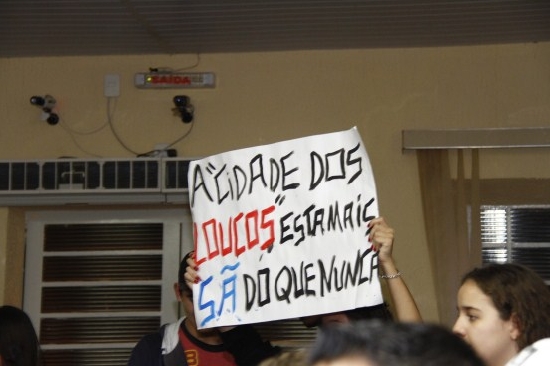 SAÍDA
A "CIDADE DOS
LOUCOS" ESTA MAIS
SÃ DO QUE NUNCA